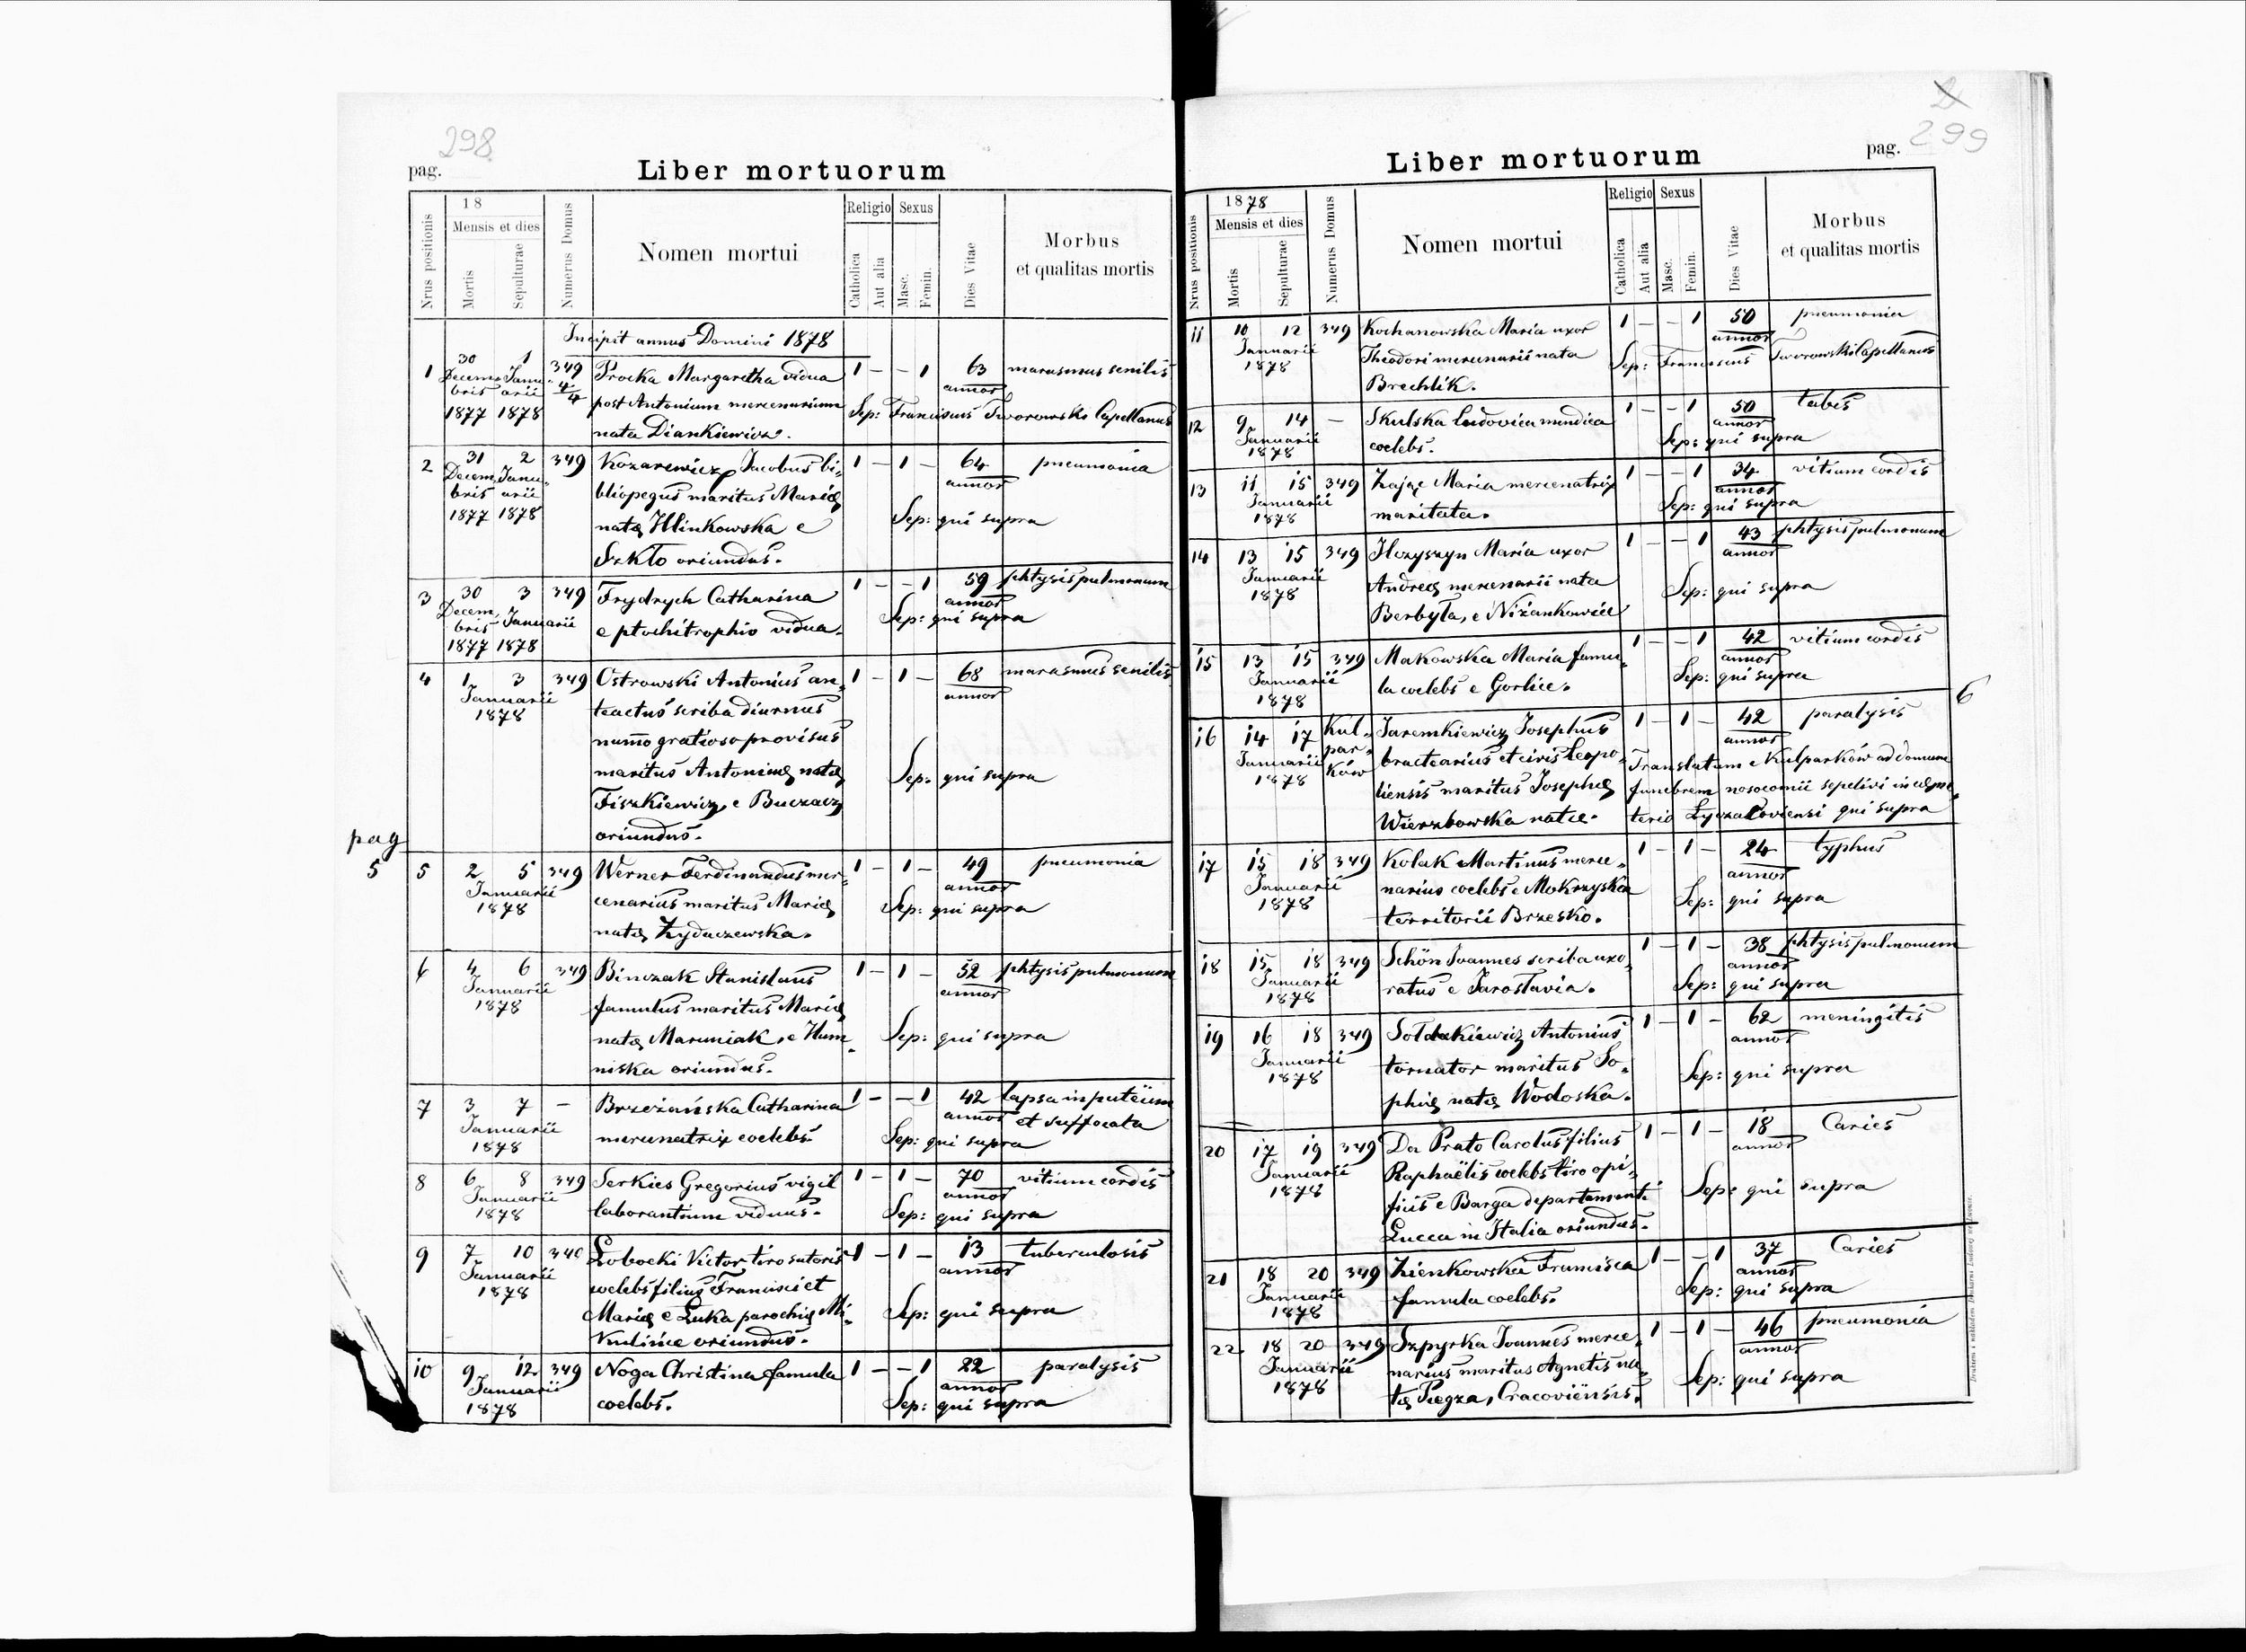 298
pag.
Liber mortuorum
Nrus positionis
18
Mensis et dies
Mortis
Sepulturae
Numerus Domus
Nomen mortui
Religio
Catholica
Aut alia
Sexus
Masc.
Femin.
Dies Vitae
Morbus
et qualitas mortis
Incipit annus Domini 1878
1 30 Decembris 1877 1 Januarii 1878 349 4/4 Procka Margaretha vidua 1 – – 1 63 annor marasmus senilis
post Antonium mercenarium Sep: Franciscus Tworowski Capellanus
nata Diankiewicz.
2 31 Decembris 1877 2 Januarii 1878 349 Kozarewicz Jacobus bi- 1 – 1 – 64 annor pneumonia
bliopegus maritus Mariae
natae Hlinkowska e Sep: qui supra
Szkło oriundus.
3 30 Decembris 1877 3 Januarii 1878 349 Frydrych Catharina 1 – – 1 59 annor phtysis pulmonum
e ptochitrophio vidua. Sep: qui supra
4 1 3 Januarii 1878 349 Ostrowski Antonius an- 1 – 1 – 68 annor marasmus senilis
teactus scriba diurnus
nummo gratioso provisus
maritus Antoninae natae Sep: qui supra
Fiszkiewicz, e Buczacz
oriundus.
pag
5
5 2 5 Januarii 1878 349 Werner Ferdinandus mer- 1 – 1 – 49 annor pneumonia
cenarius maritus Mariae Sep: qui supra
natae Żydaczewska.
6 4 6 Januarii 1878 349 Binczak Stanislaus 1 – 1 – 52 annor phtysis pulmonum
famulus maritus Mariae
natae Maruniak, e Hum- Sep: qui supra
niska oriundus.
7 3 7 Januarii 1878 – Brzeżańska Catharina 1 – – 1 42 annor lapsa in puteum
mercenatrix coelebs. Sep: qui supra et suffocata
8 6 8 Januarii 1878 349 Serkies Gregorius vigil 1 – 1 – 70 annor vitium cordis
laborantium viduus. Sep: qui supra
9 7 10 Januarii 1878 340 Łobocki Victor tiro sutoris 1 – 1 – 13 annor tuberculosis
coelebs filius Francisci et
Mariae e Łuka parochiae Mi- Sep: qui supra
kulińce oriundus.
10 9 12 Januarii 1878 349 Noga Christina famula 1 – – 1 22 annor paralysis
coelebs. Sep: qui supra
299
pag.
Liber mortuorum
Nrus positionis
1878
Mensis et dies
Mortis
Sepulturae
Numerus Domus
Nomen mortui
Religio
Catholica
Aut alia
Sexus
Masc.
Femin.
Dies Vitae
Morbus
et qualitas mortis
11 10 12 Januarii 1878 349 Kochanowska Maria uxor 1 – – 1 50 annor pneumonia
Theodori mercenarii nata Sep: Franciscus Tworowski Capellanus
Brechlik.
12 9 14 Januarii 1878 – Skulska Ludovica mendica 1 – – 1 50 annor tabes
coelebs. Sep: qui supra
13 11 15 Januarii 1878 349 Zając Maria mercenatrix 1 – – 1 34 annor vitium cordis
maritata. Sep: qui supra
14 13 15 Januarii 1878 349 Hozyszyn Maria uxor 1 – – 1 43 annor phtysis pulmonum
Andreae mercenarii nata Sep: qui supra
Berbyła, e Niżankowice
15 13 15 Januarii 1878 349 Makowska Maria famu- 1 – – 1 42 annor vitium cordis
la coelebs e Gorlice. Sep: qui supra
6
16 14 17 Januarii 1878 Kulparków Jaremkiewicz Josephus 1 – 1 – 42 annor paralysis
bractearius et civis Leopo- Translatum e Kulparków ad domum
liensis maritus Josephae funebrem nosocomii sepelivi in coeme-
Wierzbowska natae. terio Łyczakoviensi qui supra
17 15 18 Januarii 1878 349 Kolak Martinus merce- 1 – 1 – 24 annor typhus
narius coelebs e Mokrzyska Sep: qui supra
territorii Brzesko.
18 15 18 Januarii 1878 349 Schön Joannes scriba uxo- 1 – 1 – 38 annor phtysis pulmonum
ratus e Jaroslavia. Sep: qui supra
19 16 18 Januarii 1878 349 Sołdakiewicz Antonius 1 – 1 – 62 annor meningitis
tornator maritus So-
phiae natae Wodoska. Sep: qui supra
20 17 19 Januarii 1878 349 Da Prato Carolus filius 1 – 1 – 18 annor Caries
Raphaëlis coelebs tiro opi-
ficis e Barga departamenti Sep: qui supra
Lucca in Italia oriundus.
21 18 20 Januarii 1878 349 Zienkowska Francisca 1 – – 1 37 annor Caries
famula coelebs. Sep: qui supra
22 18 20 Januarii 1878 349 Szpyrka Joannes merce- 1 – 1 – 46 annor pneumonia
narius maritus Agnetis na-
tae Piegza, Cracoviënsis. Sep: qui supra